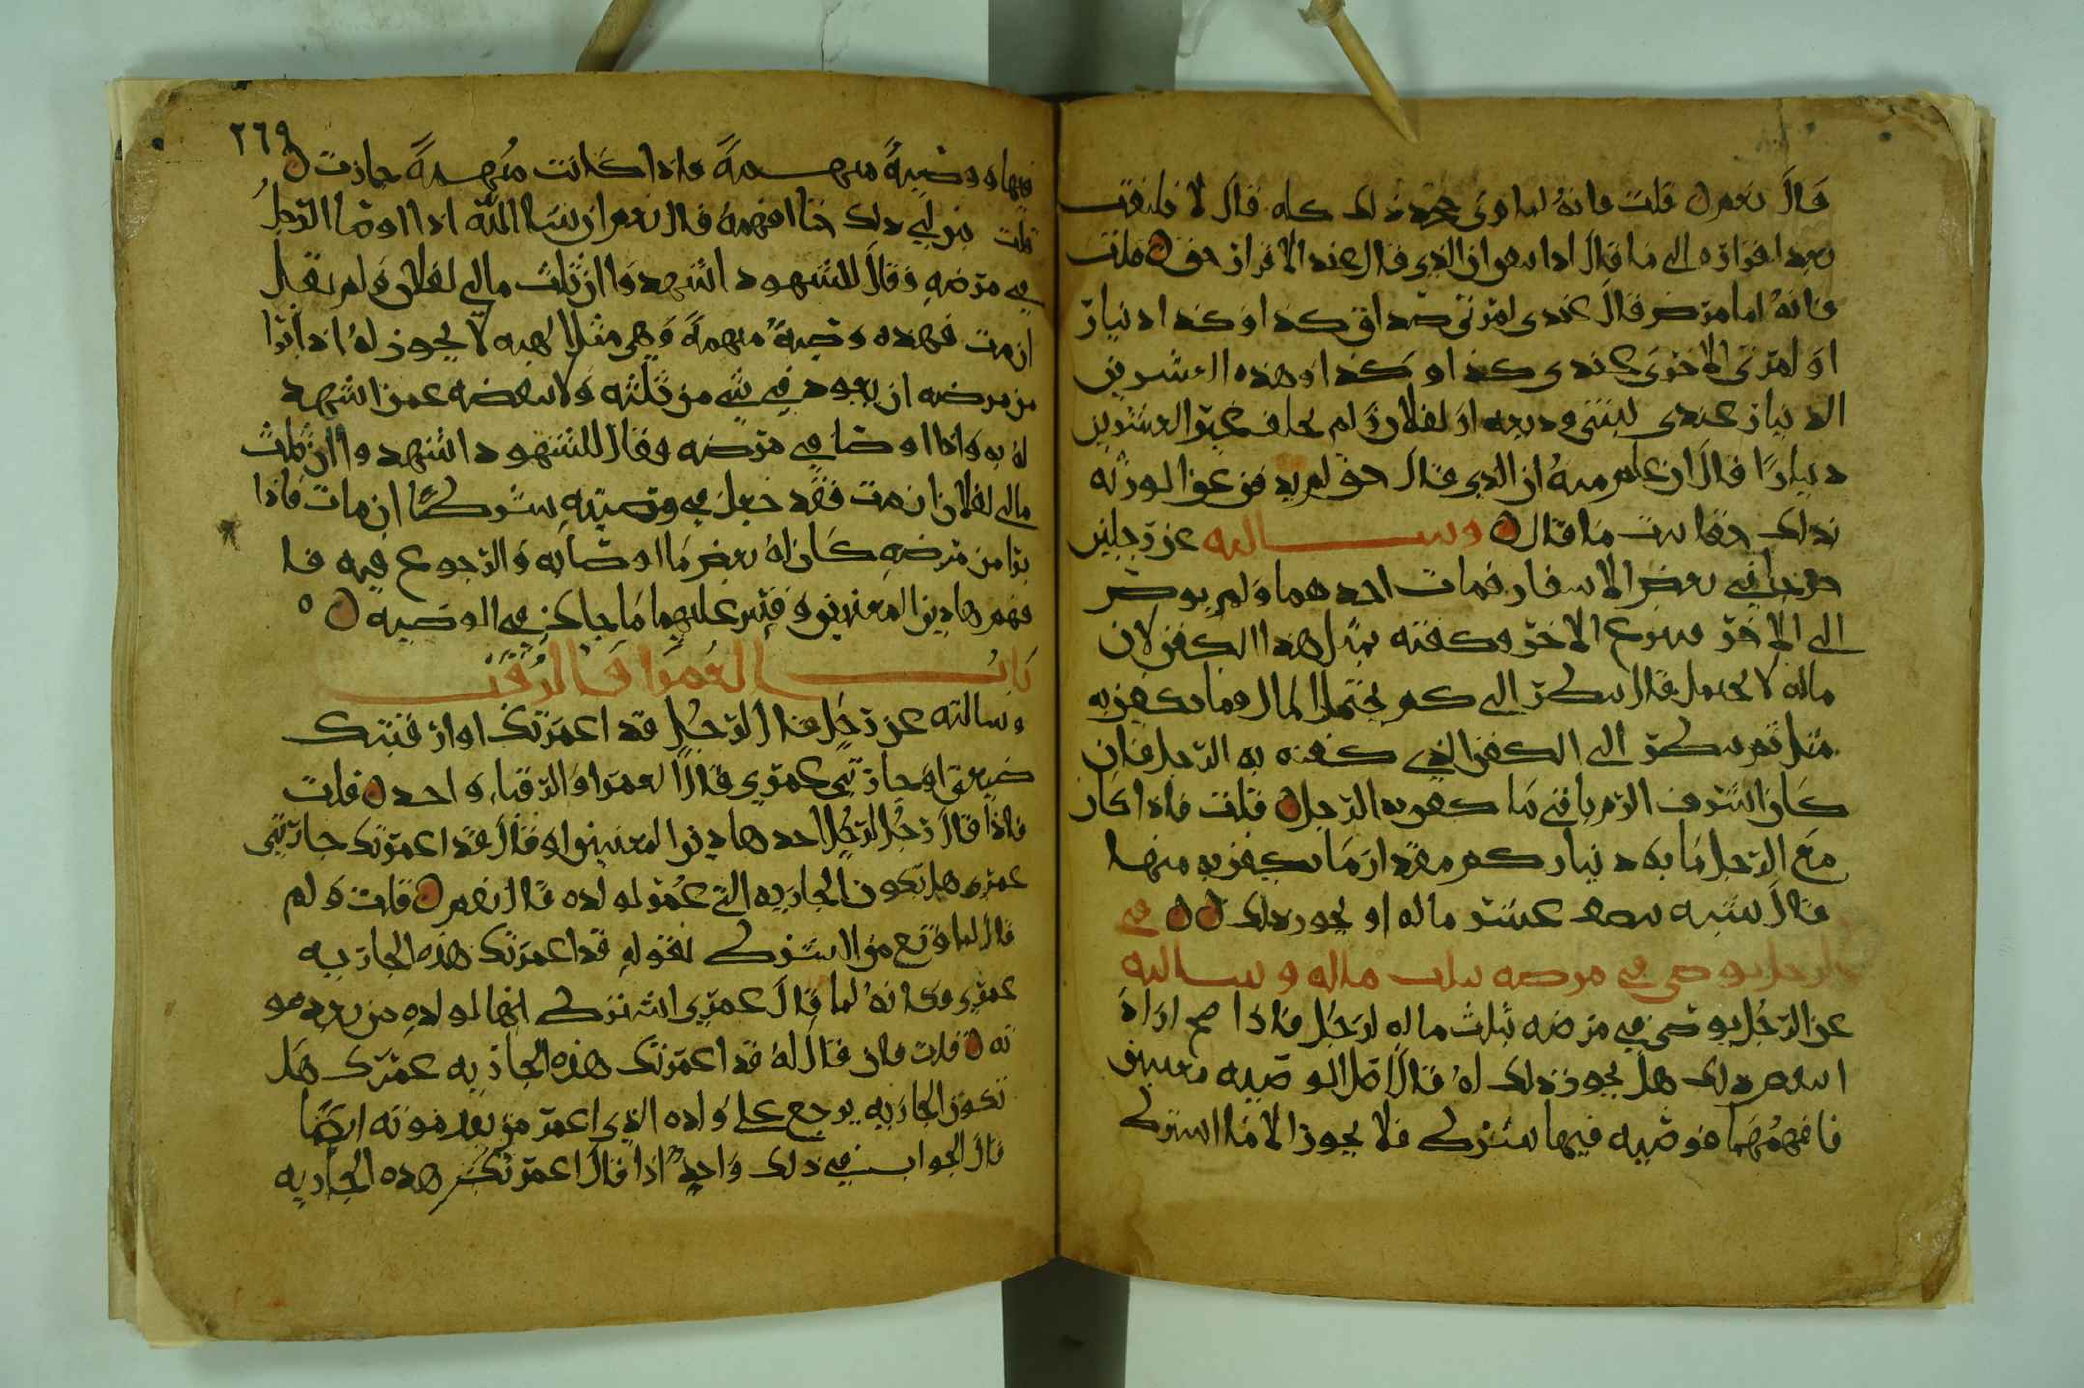 قال نعم قلت فانه لما اوتى جحد ذلك كله قال لا فليفت
بعد اقراره الى ما قال اذا ان الذي قال عند الاقرار حق قلت
فانه لما مرض قال عندي لمرتى صداق كذا او كذا دنيار
او لمرتى الاخرى عندي كذا وكذا او هذه العشرين
الدنيار عندي ليتنى وديعه او لفلان ولم يخلف غير العشرين
دنيارا قال ان علم منه ان الذي قال حق لم يدفع الورثه
ذلك حقا ثبت ما قال وسالته عن رجلين
خرجا في بعض الاسفار فمات احدهما ولم يوص
الى الاخر فتبرع الاخر وكفنه بمثل هذا الكفن لان
ماله لا يحتمل قال ينظر الى كم يحتمل المال وما يكفن به
مثله ثم ينظر الى الكفن الذي كفنه به الرجل فان
كان السرف الزم باقى ما كفن به الرجل قلت فاذا كان
مع الرجل مايه دنيار كم مقدار ما يكفن به منها
قال يشبه نصف عشر ماله او يجوز ذلك في
الرجل يوصي في مرضه بثلث ماله وسالته
عن الرجل يوصي في مرضه بثلث ماله لرجل فاذا صح اراد
ان ينقص ذلك هل يجوز ذلك له قال اصل الوصيه معنيين
فافهمهما فوصيه فيها شرط فلا يجوز الا ما اشترط
٢٦٩
فيها ووصية مبهمة فاذا كانت مبهمة جازت
قلت بين لي ذلك حتا افهمه قال نعم ان شا الله اذا اوصا الرجل
في مرضه وقال للشهود اشهدوا ان ثلث مالي لفلان ولم يقل
ان مت فهذه وصية مبهمة وهي مثل الهبه لا يجوز له اذا برا
من مرضه ان يعود في شي من ثلثه ولا بعضه عمن اشهد
له به واذا اوصا في مرضه وقال للشهود اشهدوا ان ثلث
مالي لفلان ان مت فقد جعل في وصيته شرطا ان مات فاذا
برا من مرضه كان له نقض ما اوصا به والرجوع فيه فا
فهم هاذين المعنيين وقس عليهما ما جاك في الوصيه
باب العمرا والرقبى
وسالته عن رجل قال لرجل قد اعمرتك او ارقبتك
ضيعتي او جاريتي عمري قال العمرا والرقبا واحد قلت
فاذا قال رجل لرجل احد هاذين المعنيين او قال قد اعمرتك جاريتي
عمري هل تكون الجاريه التي عمر لولده قال نعم قلت ولم
قال لما وقع من الشرط بقوله قد اعمرتك هذه الجاريه
عمري وكانه لما قال عمري اشترط انها لولده من بعد مو
ته قلت فان قال له قد اعمرتك هذه الجاريه عمرك هل
تكون الجاريه يرجع على ولده الذي اعمر من بعد موته ايضا
قال الجواب في ذلك واحد اذا قال اعمرتك هذه الجاريه